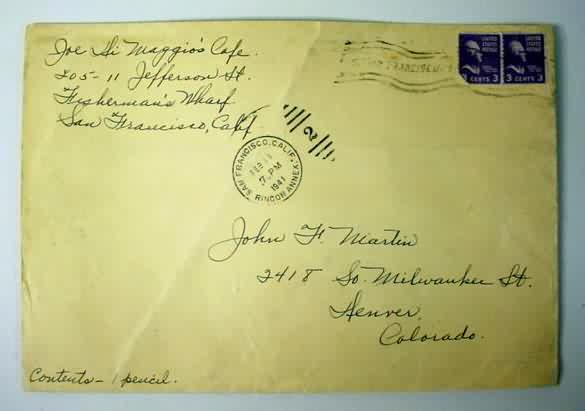 Joe Di Maggio's Cafe.
205-11 Jefferson St.
Fisherman's Wharf
San Francisco, Calif
UNITED STATES POSTAGE
3 CENTS 3
UNITED STATES POSTAGE
3 CENTS 3
SAN FRANCISCO
2
SAN FRANCISCO, CALIF.
FEB
7 PM
1941
RINCON ANNEX
John F. Martin
2418 So. Milwaukee St.
Denver,
Colorado.
Contents - 1 pencil.